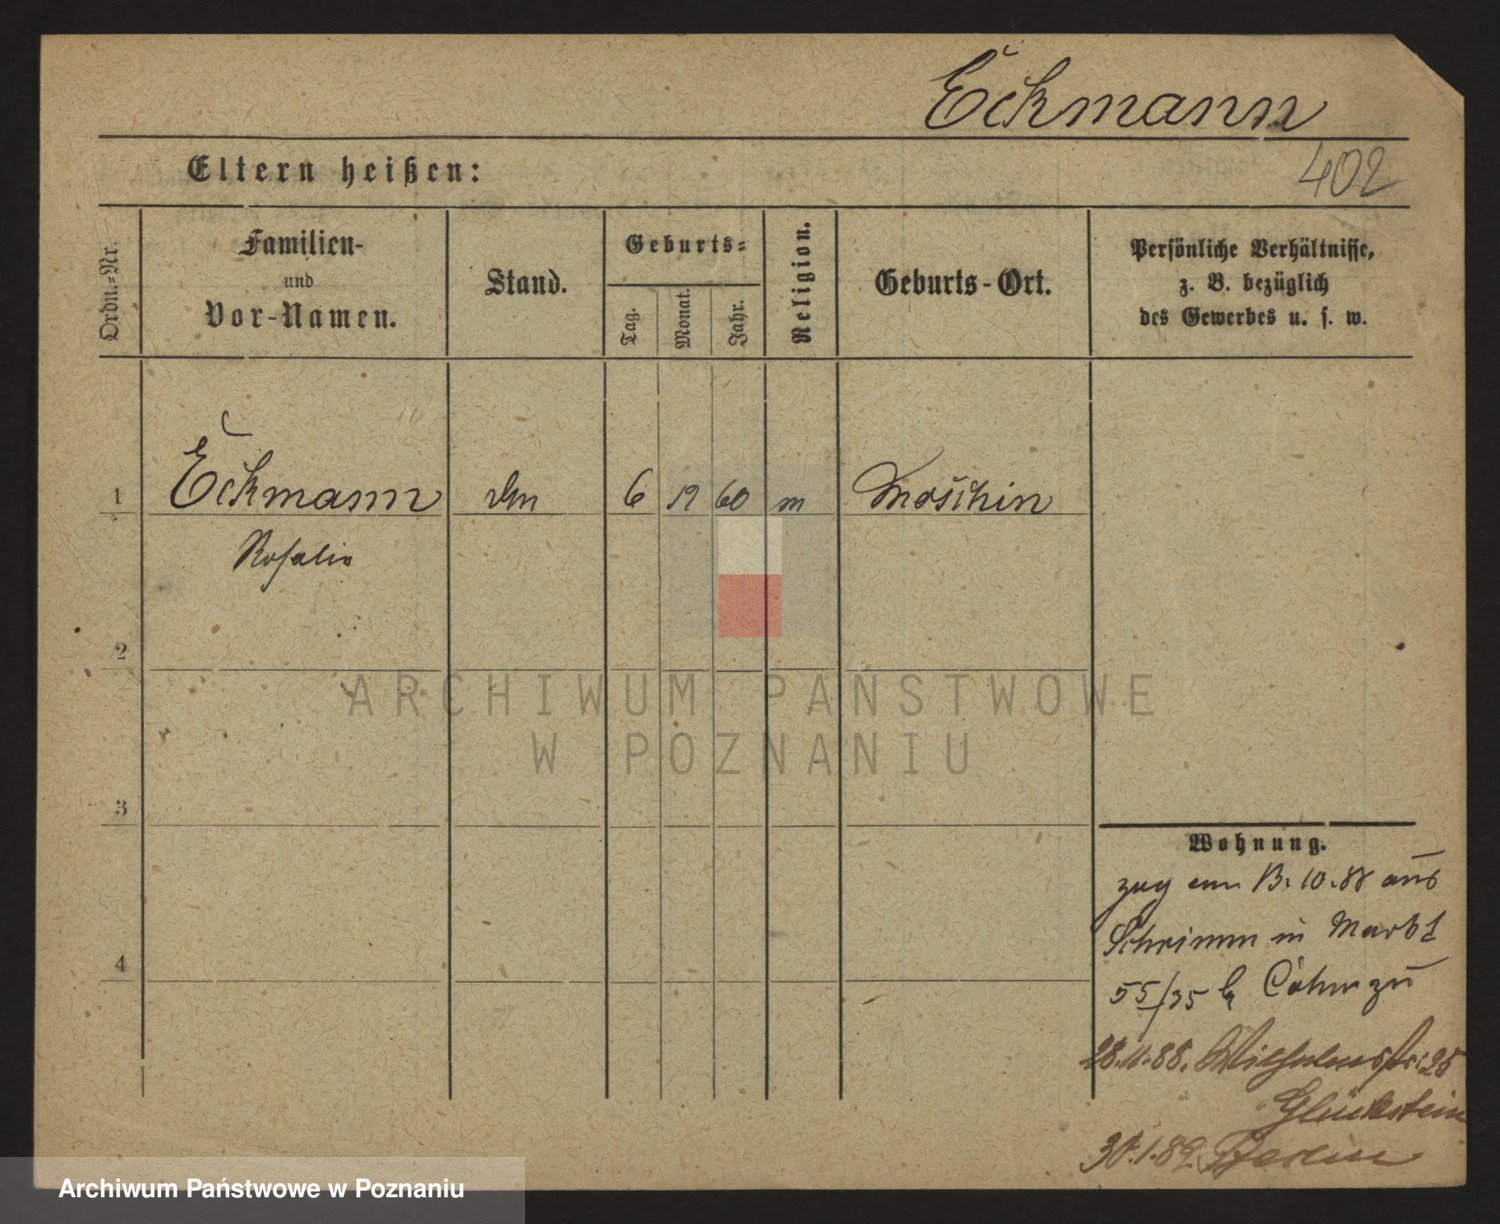 Eckmann
402
Eltern heißen:
Ordn.-Nr.
Familien-
und
Vor-Namen.
Stand.
Geburts-
Tag.
Monat.
Jahr.
Religion.
Geburts-Ort.
Persönliche Verhältnisse,
z. B. bezüglich
des Gewerbes u. s. w.
1 Eckmann 6 12 60 m Moschin
Rosalie
2
ARCHIWUM PAŃSTWOWE
W POZNANIU
3
Wohnung.
zug am 13.10.88 aus
Schrimm in Markt
55/35 b Cohn zu
28.11.88. Wilhelmstr. 25
Glückstein
30.1.89. Berlin
4
Archiwum Państwowe w Poznaniu